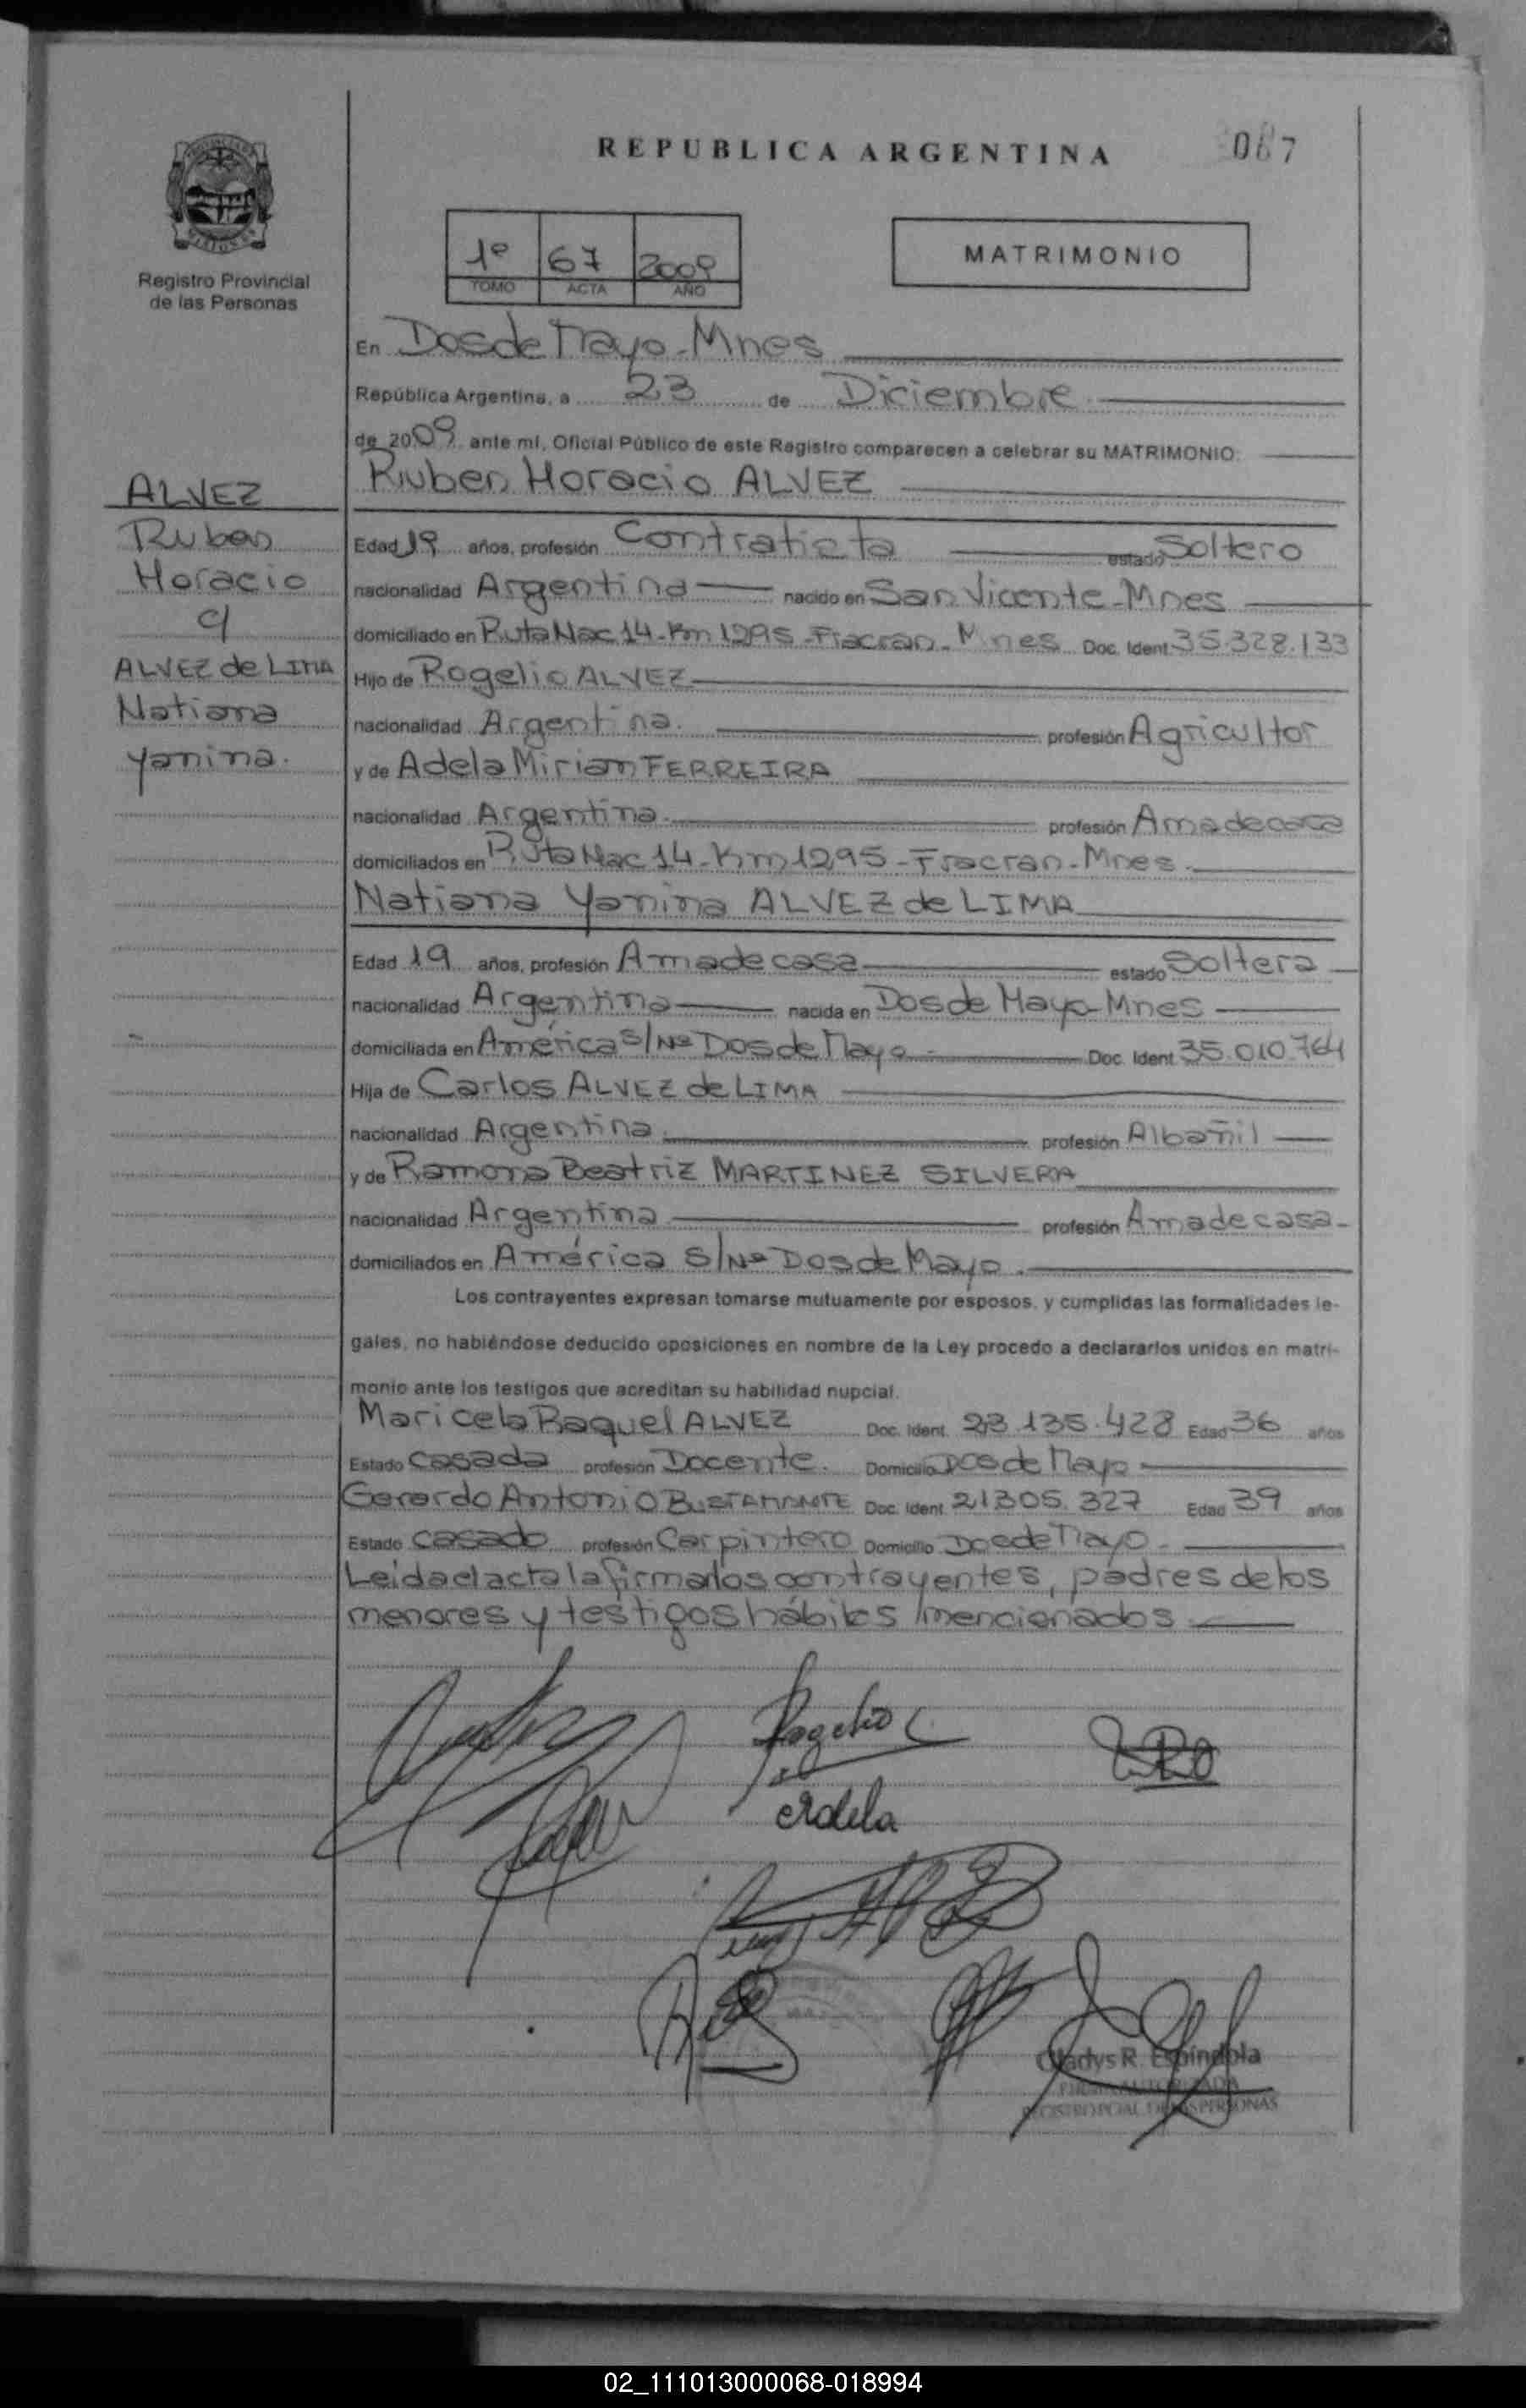 REPUBLICA ARGENTINA
067
Registro Provincial
de las Personas
1º 67 2009
TOMO ACTA AÑO
MATRIMONIO
En Dos de Mayo - Mnes
República Argentina, a 23 de Diciembre
de 2009 ante mí, Oficial Público de este Registro comparecen a celebrar su MATRIMONIO:
Ruben Horacio ALVEZ
ALVEZ
Ruben
Horacio
c/
ALVEZ de LIMA
Natiana
Yanina.
Edad 19 años, profesión Contratista estado Soltero
nacionalidad Argentina nacido en San Vicente - Mnes
domiciliado en Ruta Nac 14 - Km 1295 - Fracran - Mnes Doc. Ident 35.328.133
Hijo de Rogelio ALVEZ
nacionalidad Argentina. profesión Agricultor
y de Adela Mirian FERREIRA
nacionalidad Argentina. profesión Ama de casa
domiciliados en Ruta Nac 14 - Km 1295 - Fracran - Mnes.
Natiana Yanina ALVEZ de LIMA
Edad 19 años, profesión Ama de casa estado Soltera
nacionalidad Argentina nacida en Dos de Mayo - Mnes
domiciliada en América S/Nº Dos de Mayo. Doc. Ident 35.010.764
Hija de Carlos ALVEZ de LIMA
nacionalidad Argentina. profesión Albañil
y de Ramona Beatriz MARTINEZ SILVERA
nacionalidad Argentina profesión Ama de casa
domiciliados en América S/Nº Dos de Mayo.
Los contrayentes expresan tomarse mutuamente por esposos, y cumplidas las formalidades le-
gales, no habiéndose deducido oposiciones en nombre de la Ley procedo a declararlos unidos en matri-
monio ante los testigos que acreditan su habilidad nupcial.
Maricela Raquel ALVEZ Doc. Ident. 23.135.428 Edad 36 años
Estado Casada profesión Docente. Domicilio Dos de Mayo
Gerardo Antonio BUSTAMANTE Doc. Ident. 21.305.327 Edad 39 años
Estado Casado profesión Carpintero Domicilio Dos de Mayo
Leida el acta la firman los contrayentes, padres de los
menores y testigos hábiles mencionados
Rogelio
Adela
Gladys R. Espindola
FIRMA AUTORIZADA
REGISTRO PCIAL DE LAS PERSONAS
02_111013000068-018994